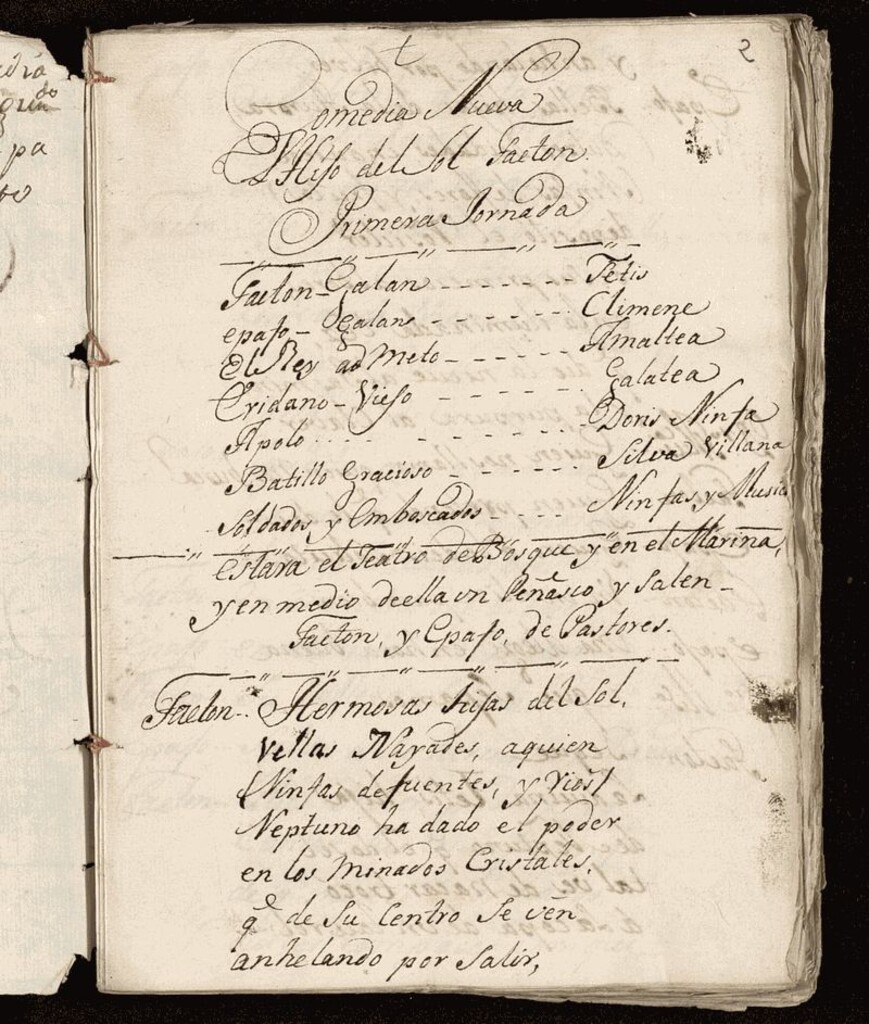 dia
pa
to
t
2
Comedia Nueva
El Hijo del Sol Faeton.
Primera Jornada
Faeton - Galan - - - - - - Tetis
epafo - Galan - - - - - - Climene
El Rey ad Meto - - - - - - Amaltea
Eridano - Viejo - - - - - - Galatea
Apolo . . . . - - - - - - Doris Ninfa
Batillo Gracioso - - - - - - Silva Villana
Soldados y Emboscados - - - - Ninfas y Music
estara el Teatro de Bosque y en el Marina,
y en medio deella vn Peñasco y Salen -
Faeton, y Epafo, de Pastores.
Faeton - . Hermosas hijas del Sol,
vellas Nayades, aquien
(Ninfas de fuentes, y Rios)
Neptuno ha dado el poder
en los minados Cristales,
q.e de Su Centro Se ven
anhelando por Salir,